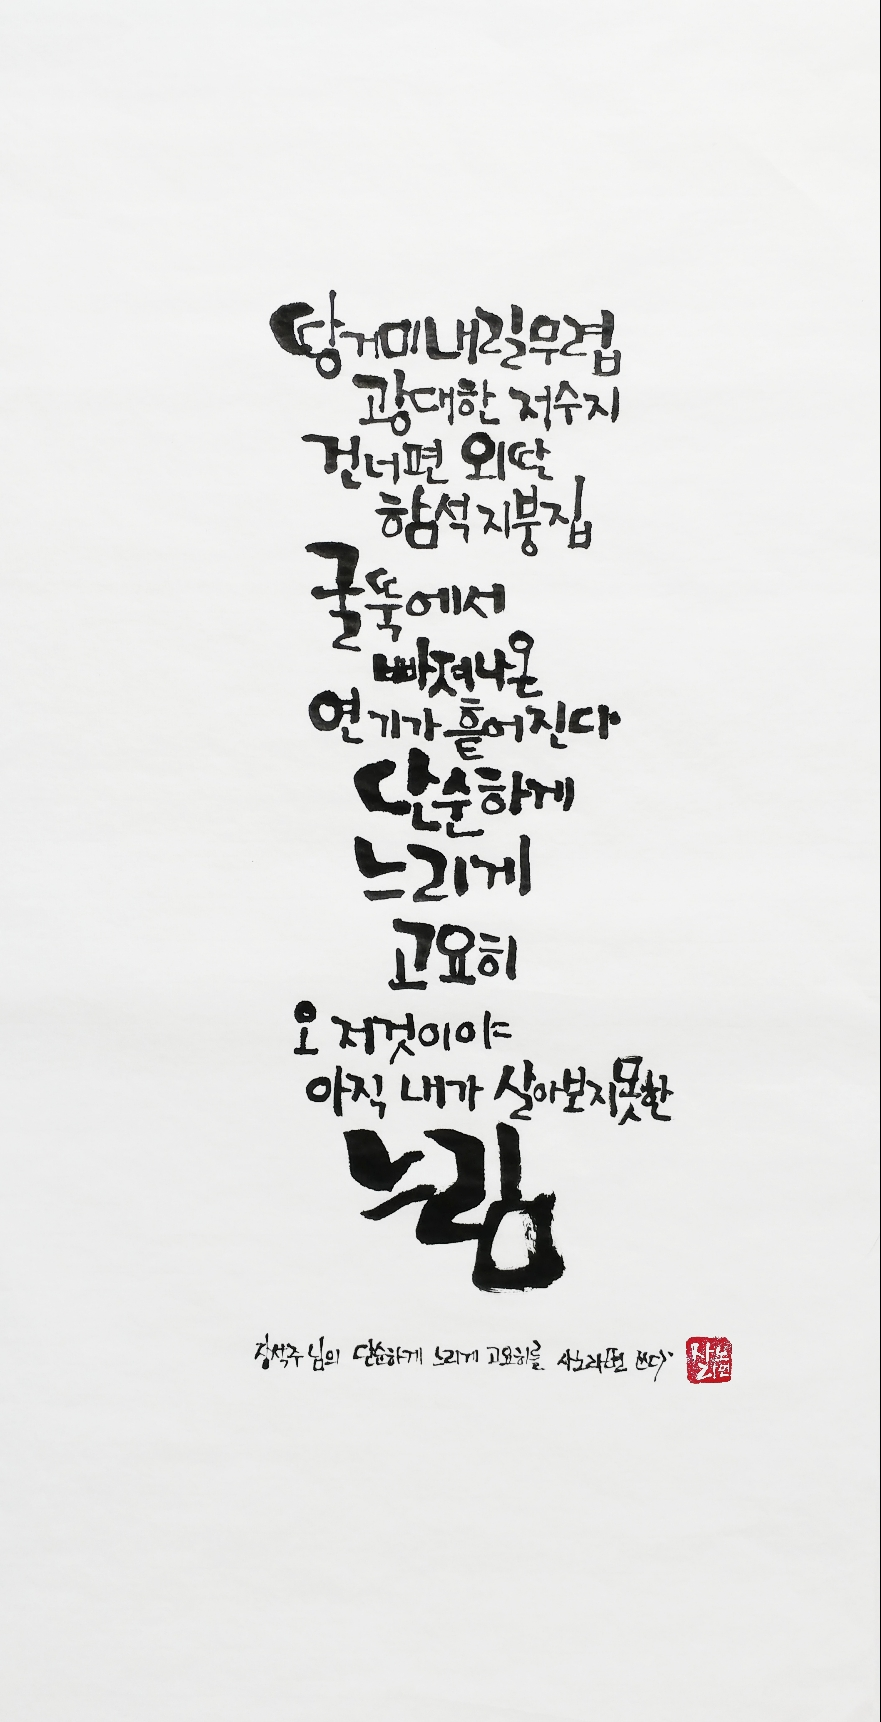 땅거미 내릴 무렵
광대한 저수지
건너편 외딴
함석지붕 집
굴뚝에서
빠져나온
연기가 흩어진다
단순하게
느리게
고요히
오 저것이야
아직 내가 살아보지 못한
느림
장석주 님의 단순하게 느리게 고요히를 사노라면 쓰다
사노
라면